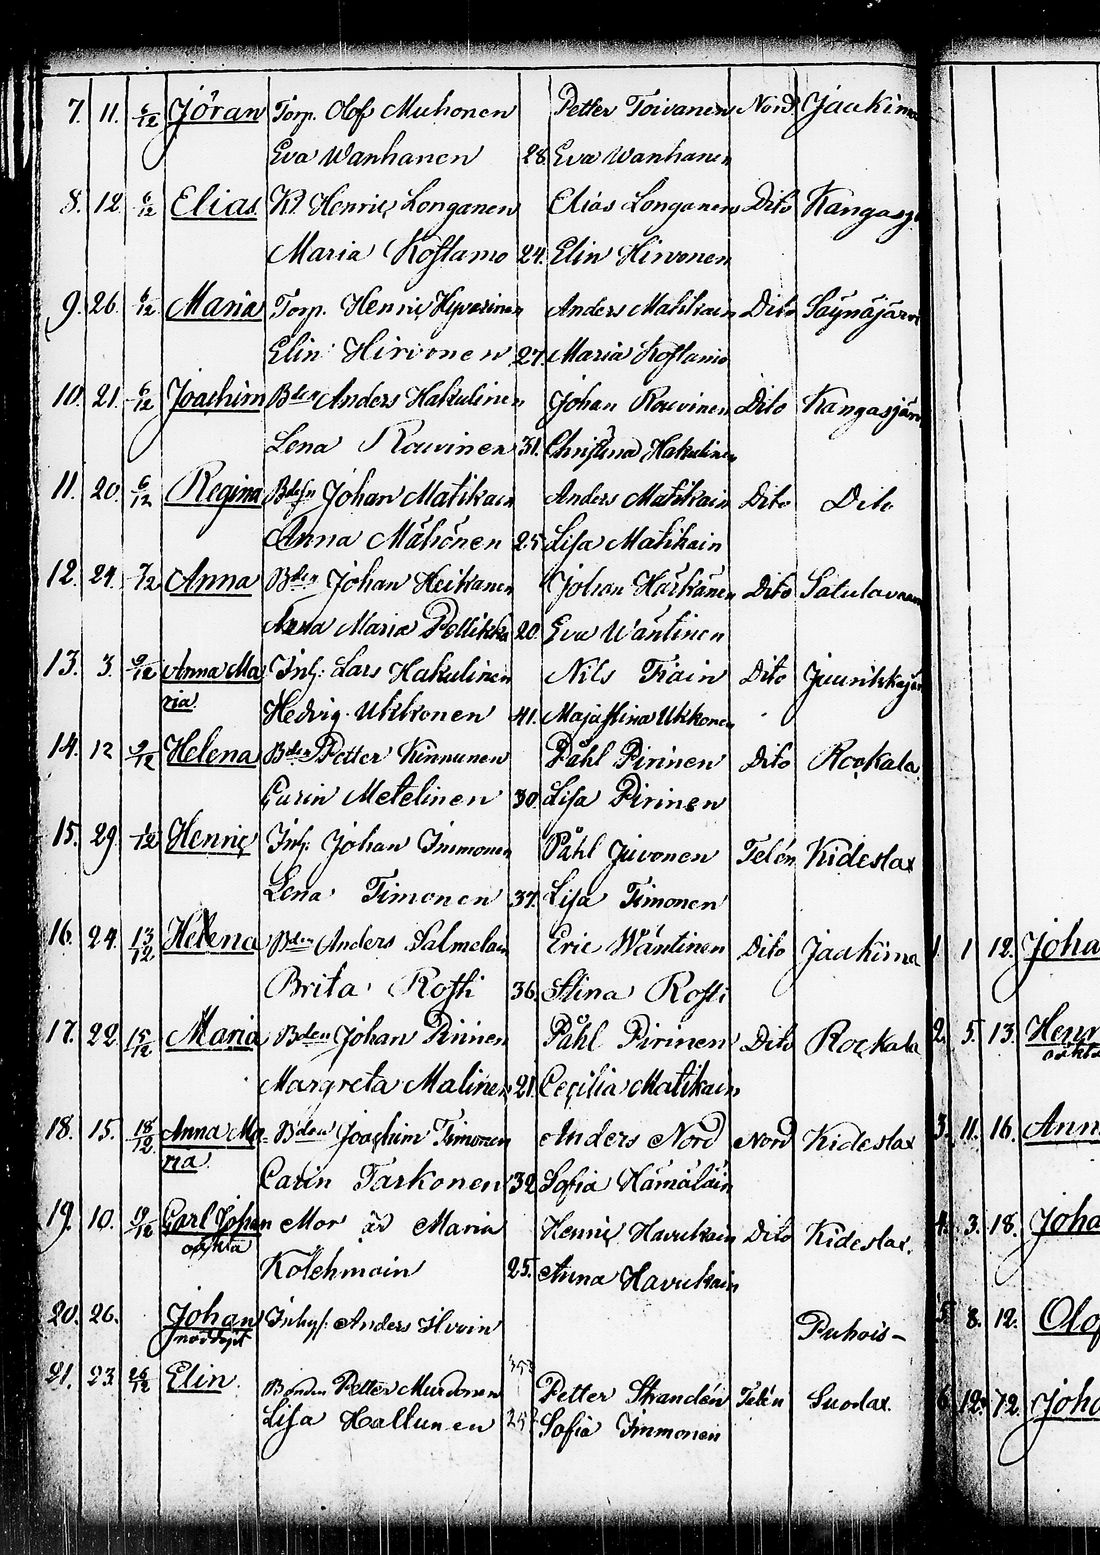 7. 11. 6/12 Jöran Torp. Olof Muhonen Petter Toivanen Nord Jaakima
Eva Wanhanen 28. Eva Wanhanen
8. 12. 6/12 Elias Kl Henric Longanen Elias Longanen Dito Kangasj
Maria Kostamo 24. Elin Hirvonen
9. 26. 6/12 Maria Torp. Henric Hyvärinen Anders Matikain Dito Säynäjärv
Elin Hirvonen 27. Maria Kostamo
10. 21. 6/12 Joachim Bden Anders Hakulinen Johan Rouvinen Dito Kangasjärv
Lena Rouvinen 31. Christina Hakulinen
11. 20. 6/12 Regina Bdesn Johan Matikain Anders Matikain Dito Dito
Anna Mähönen 25. Lisa Matikain
12. 24. 7/12 Anna Bden Johan Heikanen Johan Härkänen Dito Satulavaara
Anna Maria Pellikka 20. Eva Wäntinen
13. 3. 9/12 Anna Ma Inh: Lars Hakulinen Nils Tiain Dito Juurikkajär
ria Hedvig Ukkonen 41. Maja Stina Ukkonen
14. 12 9/12 Helena Bden Petter Kinnunen Påhl Pirinen Dito Rockala
Carin Metelinen 30. Lisa Pirinen
15. 29. /12 Henric Inh: Johan Immonen Påhl Juvonen Telén Kideslax
Lena Timonen 37. Lisa Timonen
16. 24. 13/12 Helena Bden Anders Salmelain Eric Wäntinen Dito Jaakima 1. 1 12. Joha
Brita Rosti 36. Stina Rosti
17. 22. 15/12 Maria Bden Johan Pirinen Påhl Pirinen Dito Rockala 2. 5. 13. Henr
Margreta Malinen 21. Cecilia Matikain
18. 15. 18/12 Anna Ma- Bden Joachim Timonen Anders Nord Nord Kideslax 3. 11. 16. Ann
ria Carin Tarkonen 32. Sofia Hämäläin
19. 10. 19/12 Carl Johan Mor är Maria Henric Havukain Dito Kideslax. 4. 3. 18. Joha
oäkta Kolehmain 25. Anna Havukain
20. 26. Johan Inhys: Anders Ilvoin Puhois- 5. 8. 12. Olof
nöddöpt
21. 23. 26/12 Elin Bonden Petter Murdonen 35 Petter Strandén Telén Suodax 6. 12. 12. Joha
Lisa Hallunen 25 Sofia Immonen